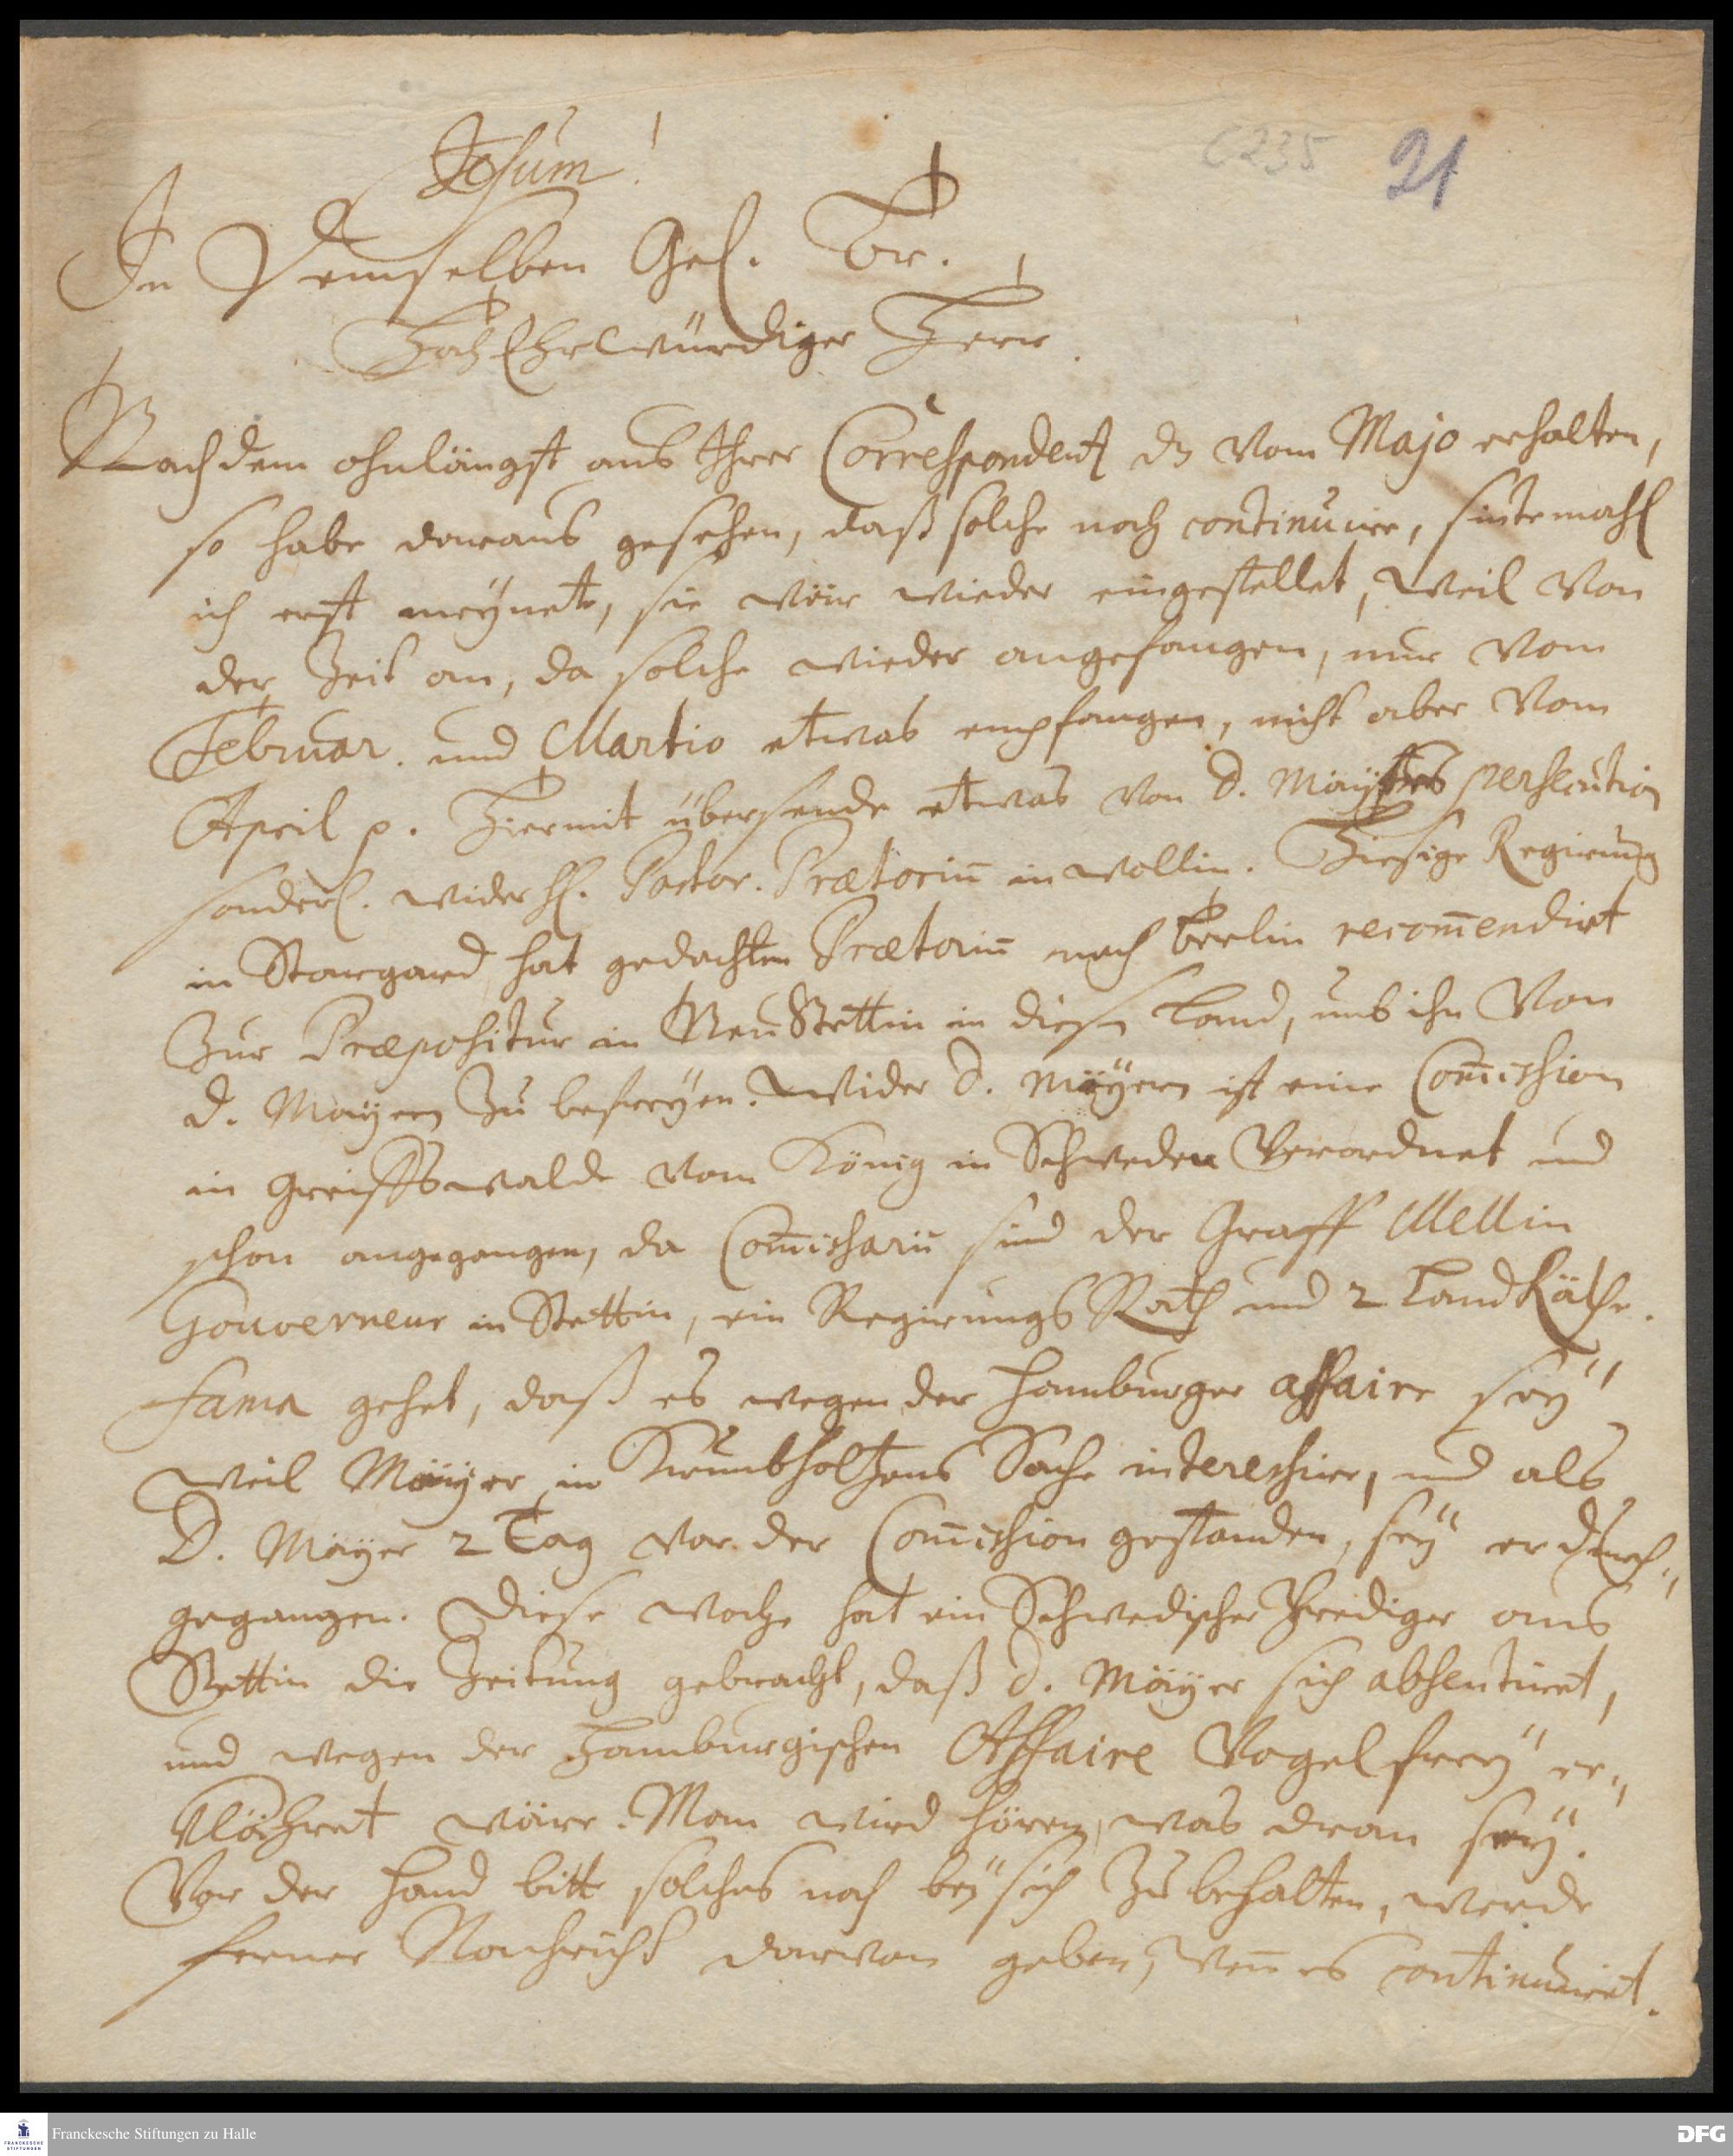 C 235 21
Jesum!
In Demselben Gel. Br.
HochEhrwürdiger Herr.
Nachdem ohnlängst aus Ihrer Correspondentz dz vom Majo erhalten,
so habe daraus gesehen, daß solche noch continuire, sintemahl
ich erst meynete, sie wär wieder eingestellet, weil von
der Zeit an, da solche wieder angefangen, nur vom
Februar. und Martio etwas empfangen, nicht aber vom
April p. Hiermit übersende etwas von D. Mäyers persecution
sonderl. wider H. Pastor. Prætoriū in Wollin. Hiesige Regierung
in Stargard hat gedachten Prætoriū nach Berlin recom̄endirt
Zur Præpositur in Neu Stettin in diese Land, umb ihn von
D. Mayern zu befreyen. Wider D. Mäyern ist eine Com̄ission
in Greiffswalde vom König in Schweden verordnet und
schon angegangen, da Com̄issarii sind der Graff Mellin
Gouverneur in Stettin, ein Regierungs Rath und 2 Land Räthe.
Fama gehet, daß es wegen der Hamburger affaire sey
weil Mäyer in Krumbholtzens Sache interessire, und als
D. Mäyer 2 Tag vor der Com̄ission gestanden, sey er durch-
gegangen. Diese woche hat ein Schwedischer Prediger aus
Stettin die Zeitung gebracht, daß D. Mäyer sich absentiret,
und wegen der Hamburgischen Affaire Vogel frey er-
klähret wäre. Man wird hören, was dran sey.
Vor der Hand bitte solches noch bey sich zu behalten, werde
ferner Nachricht darvon geben, wen̄ es continuiret.
Franckesche Stiftungen zu Halle
FRANCKESCHE STIFTUNGEN
DFG